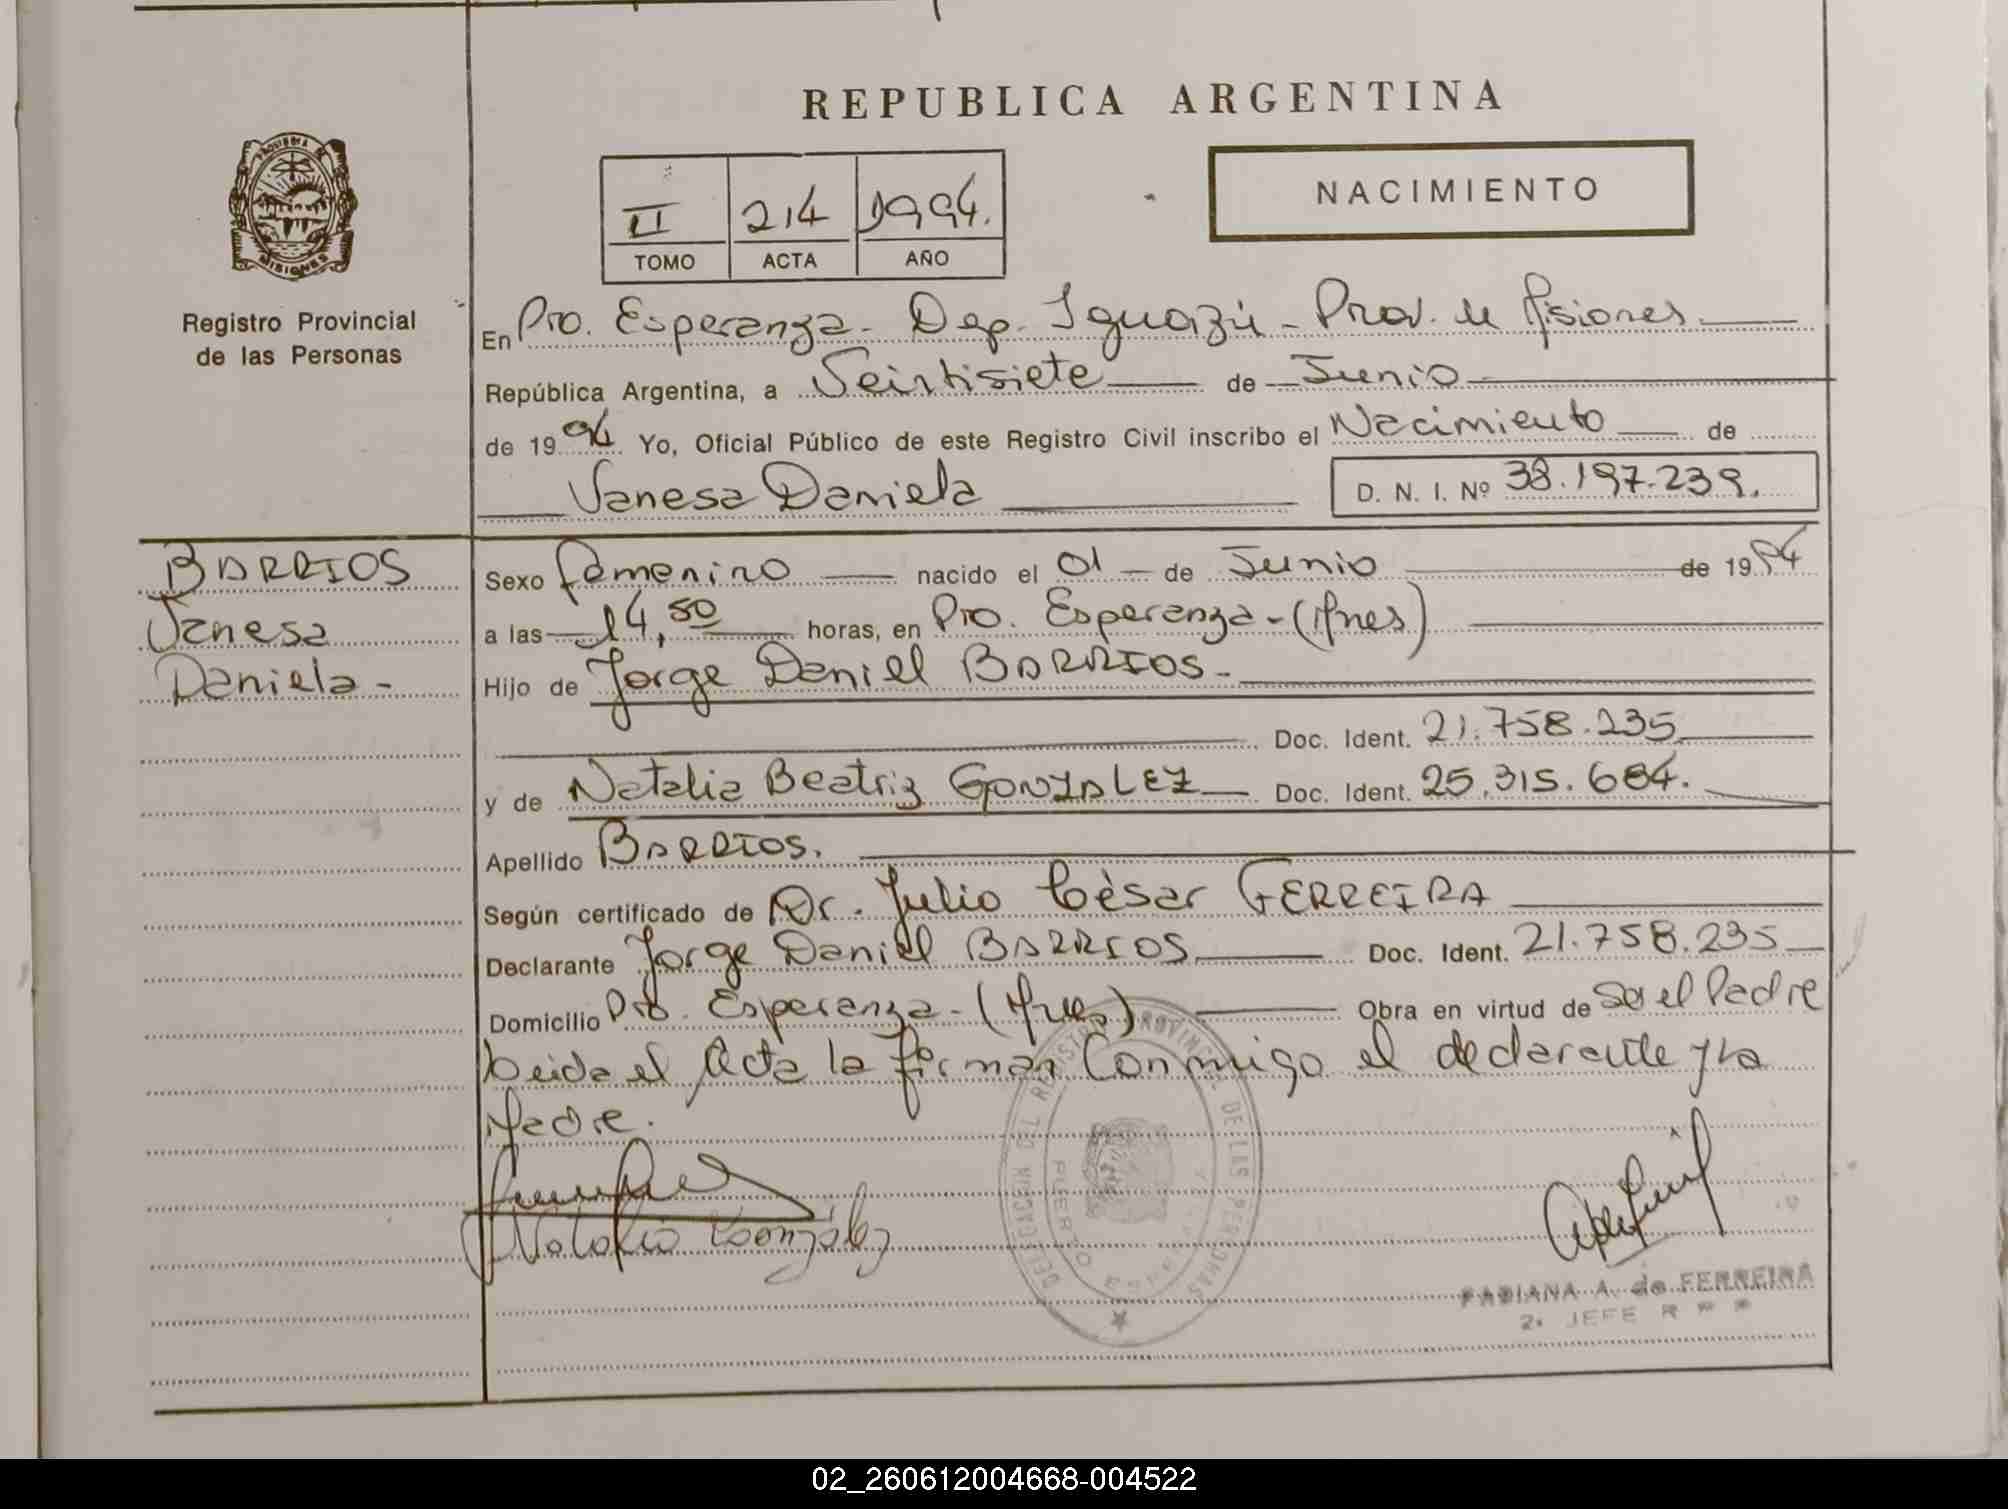 REPUBLICA ARGENTINA
PROVINCIA DE
MISIONES
Registro Provincial
de las Personas
II 214 1994.
TOMO ACTA AÑO
NACIMIENTO
En Pto. Esperanza - Dep. Iguazú - Prov. de Misiones
República Argentina, a Veintisiete de Junio
de 1994 Yo, Oficial Público de este Registro Civil inscribo el Nacimiento de
Vanesa Daniela D. N. I. Nº 38.197.239.
BARRIOS
Vanesa
Daniela -
Sexo femenino nacido el 01 de Junio de 1994
a las 14,50 horas, en Pto. Esperanza - (Mnes)
Hijo de Jorge Daniel BARRIOS -
Doc. Ident. 21.758.235
y de Natalia Beatriz GONZALEZ Doc. Ident. 25.315.684.
Apellido BARRIOS.
Según certificado de Dr. Julio Cèsar FERREIRA
Declarante Jorge Daniel BARRIOS Doc. Ident. 21.758.235
Domicilio Pto. Esperanza - (Mnes) Obra en virtud de Ser el Padre
Leida el Acta la firman Conmigo el declarante y la
Madre.
Natalia González
DELEGACION DEL REGISTRO PROVINCIAL DE LAS PERSONAS
PUERTO ESPERANZA
FABIANA A. de FERREIRA
2. JEFE R P P
02_260612004668-004522